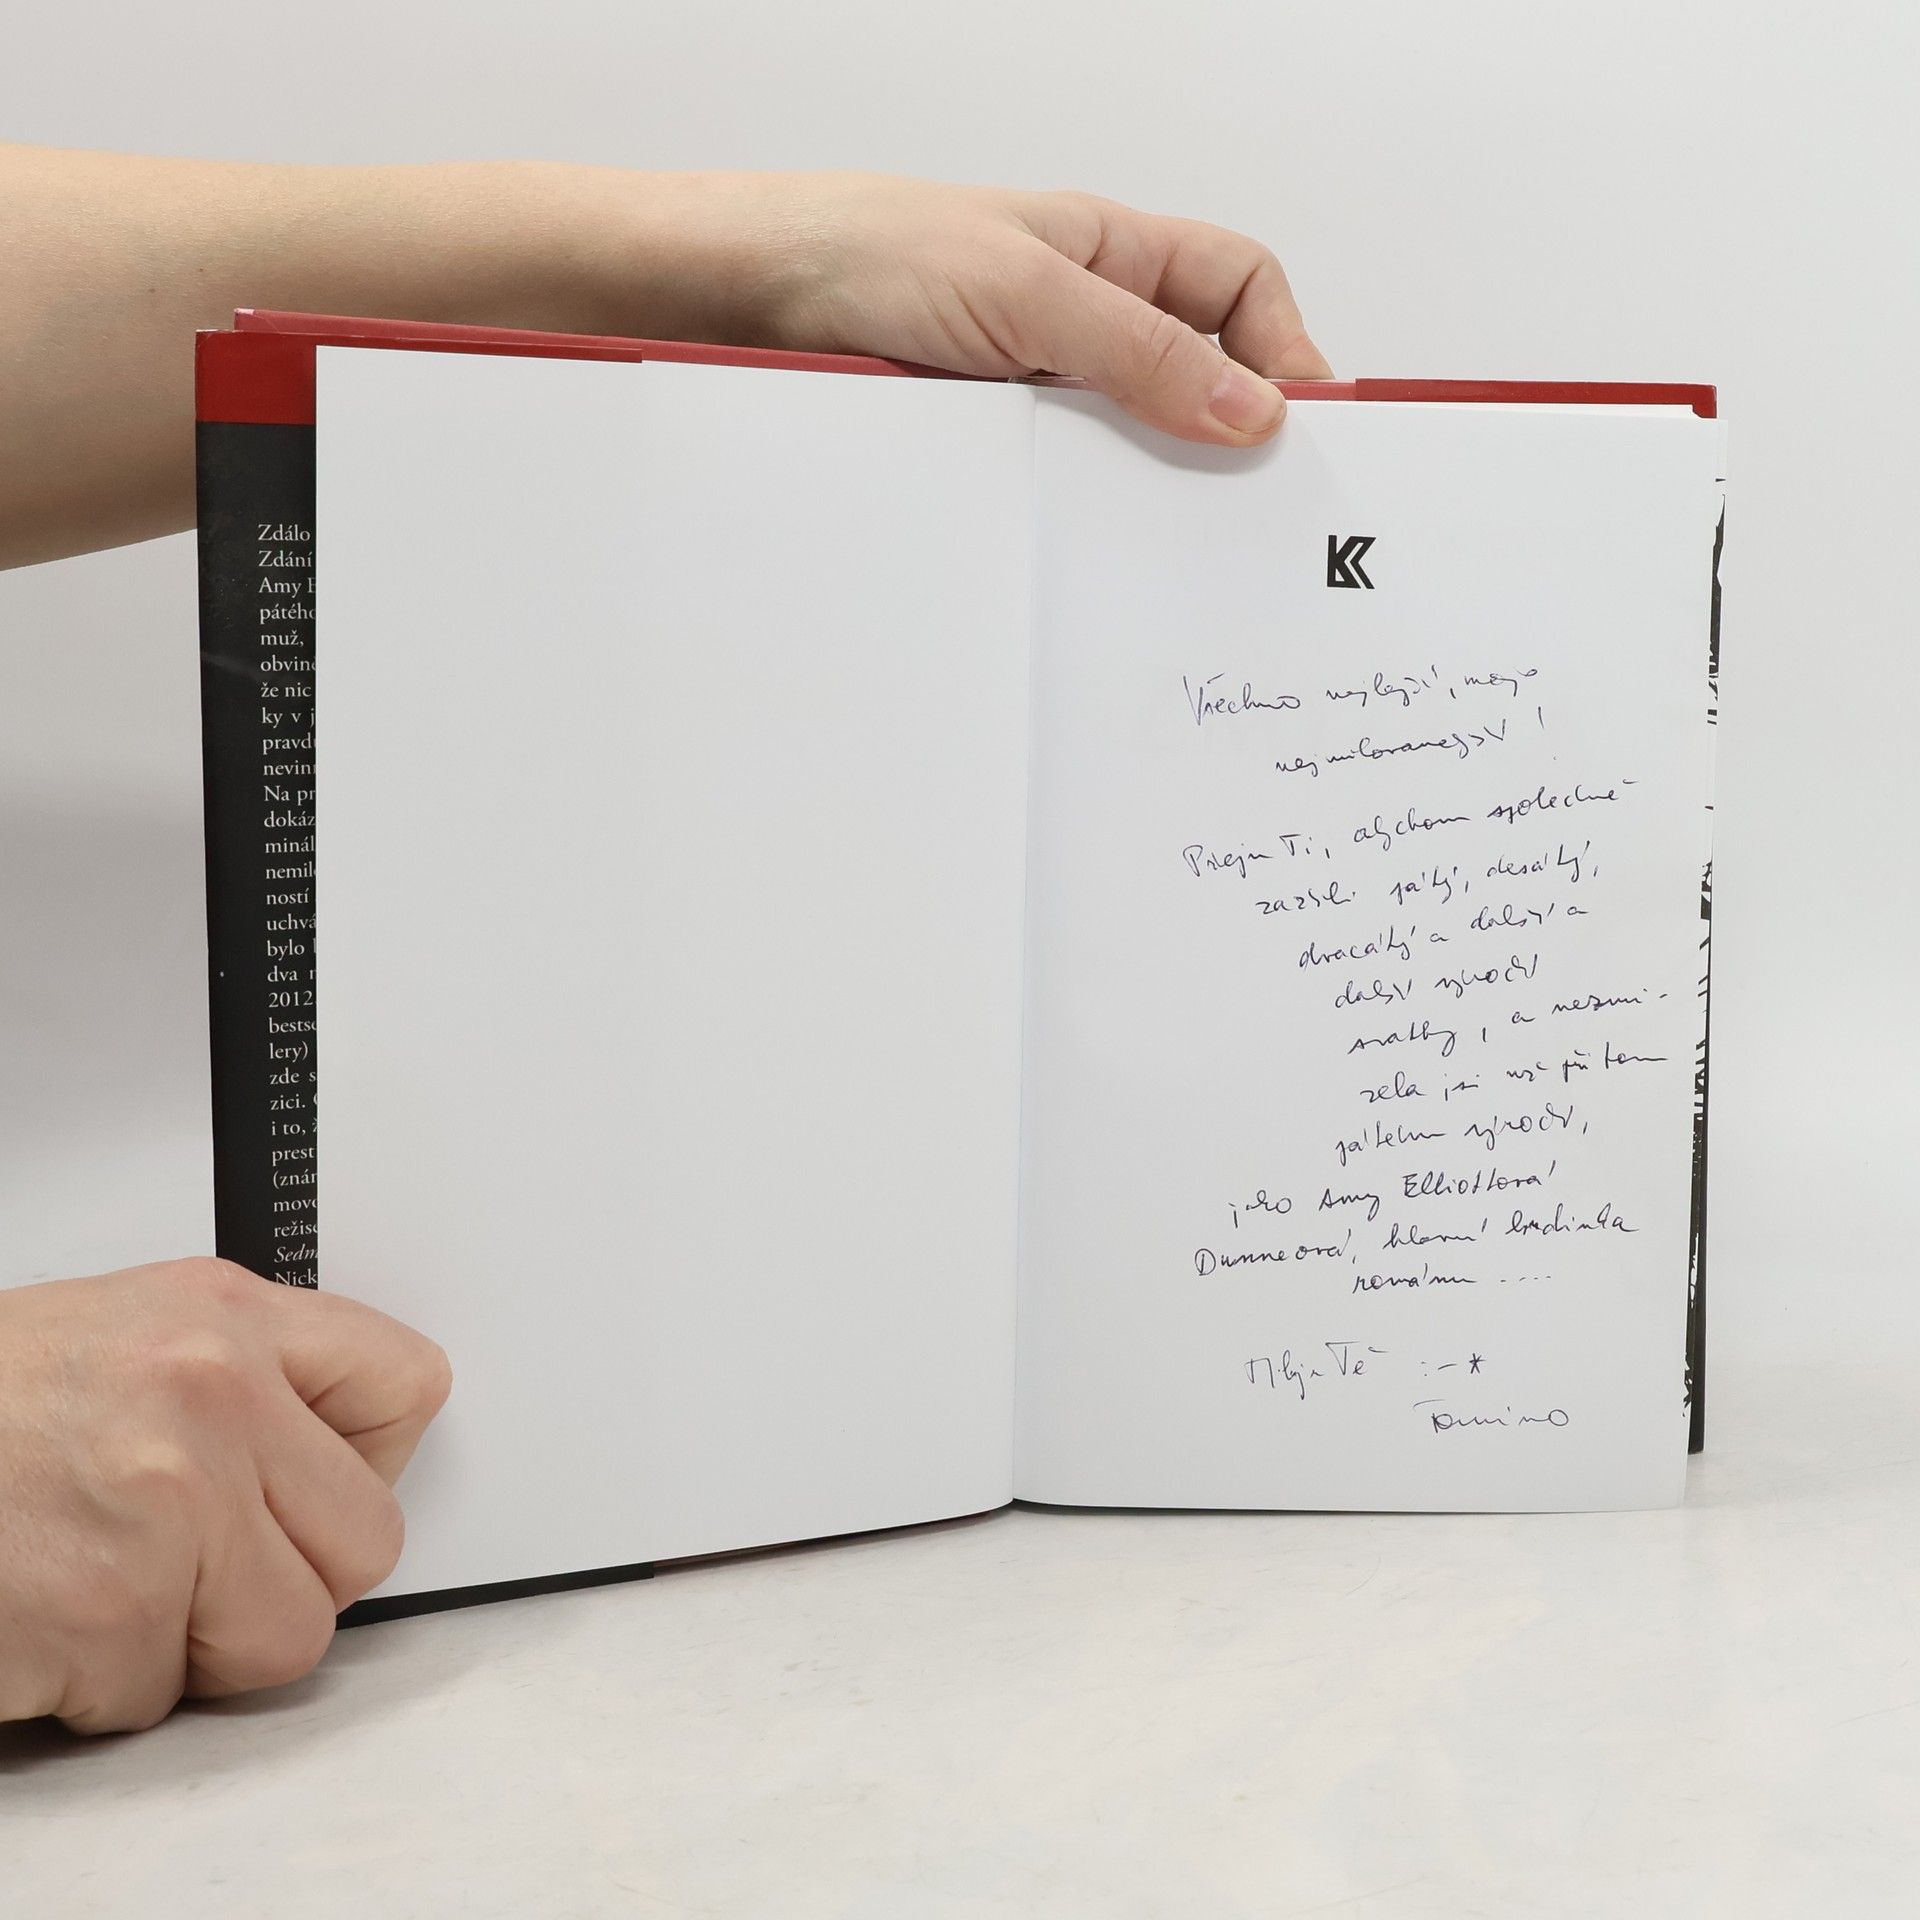 Zdálo
Zdání
Amy E
pátého
muž,
obvině
že nic
ky v j
pravdu
nevinn
Na pr
dokáz
minál
nemilo
ností
uchvá
bylo
dva n
2012
bestse
lery)
zde s
zici.
i to, ž
prest
(znám
movo
režisé
Sedm
Nick
K
Všechno nejlepší, moje
nejmilovanější!
Přeju Ti, abychom společně
zažili pátý, desátý,
dvacátý a další a
další výročí
svatby, a nezmi-
zela jsi už při tom
pátém výročí,
jako Amy Elliottová
Dunneová, hlavní hrdinka
románu ....
Miluju Tě :-*
Tomino